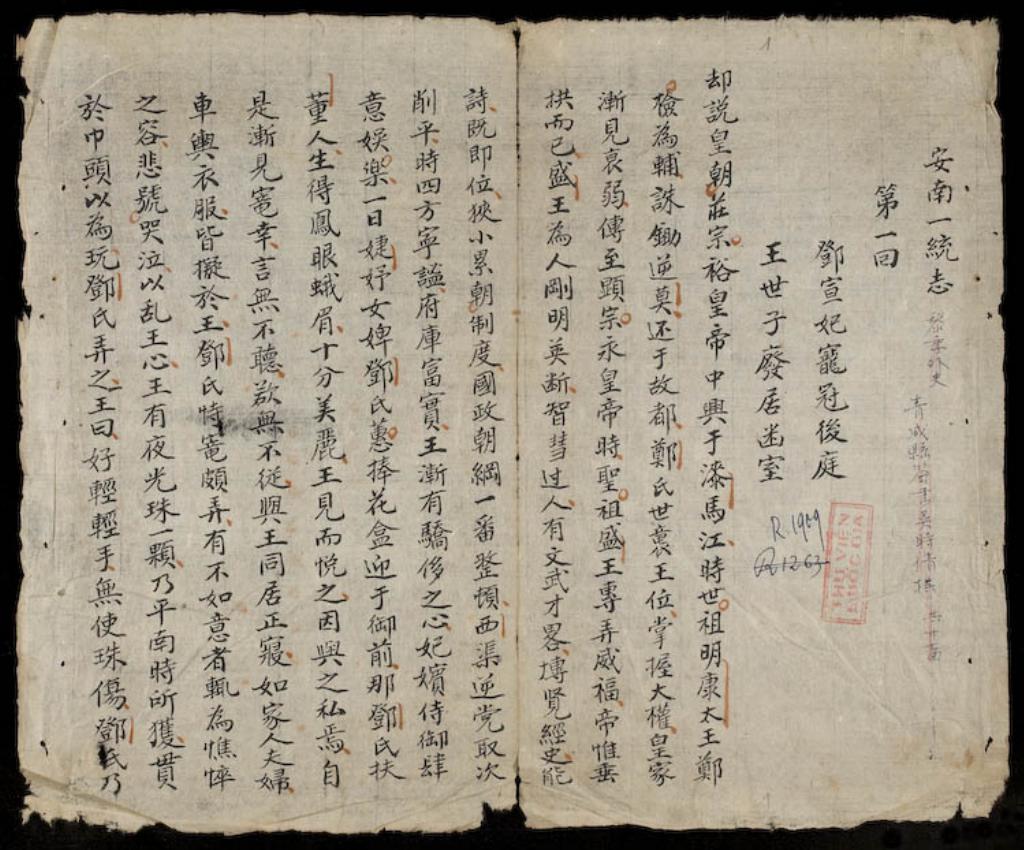 安南一統志 黎季外史
青威縣 吳時
第一回
鄧宣妃寵冠後庭
王世子廢居幽室
R.1969
R1263
THƯ VIỆN
QUỐC GIA
却説皇朝莊宗裕皇帝中興于漆馬江時世祖明康太王鄭
檢為輔誅鋤逆莫还于故都鄭氏世襲王位掌握大權皇家
漸見衰弱傳至顕宗永皇帝時聖祖盛王專弄威福帝惟垂
拱而已盛王為人剛明英断智彗过人有文武才畧博覽經史能
詩既即位狹小累朝制度國政朝綱一番整頓西渠逆党取次
削平時四方寧謐府庫富實王漸有驕侈之心妃嬪侍御肆
意娱楽一日婕妤女婢鄧氏蕙捧花盒迎于御前那鄧氏扶
董人生得鳳眼蛾眉十分美麗王見而悦之因與之私焉自
是漸見寵幸言無不聽欲無不從與王同居正寢如家人夫婦
車輿衣服皆擬於王鄧氏恃寵頗弄有不如意者輒為憔悴
之容悲號哭泣以乱王心王有夜光珠一顆乃平南時所獲貫
於巾頭以為玩鄧氏弄之王曰好輕輕手無使珠傷鄧氏乃